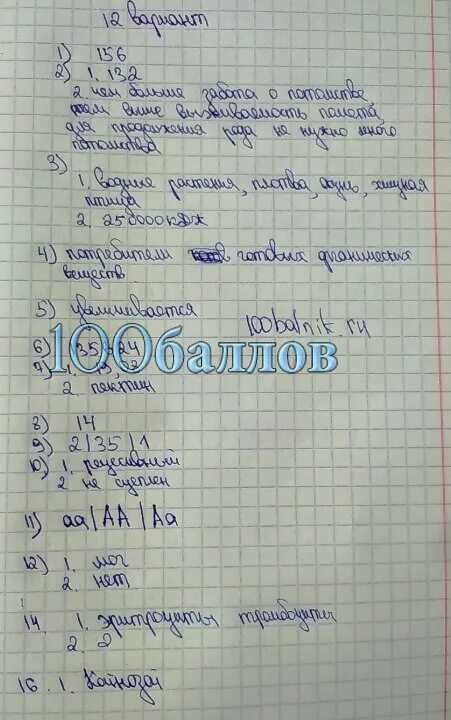 12 вариант
1) 156
2) 1. 132
2. чем больше забота о потомстве,
тем выше выживаемость помета,
для продолжения рода не нужно много
потомства
3)
1. Водные растения, плотва, окунь, хищная
птица
2. 250000 кДж
4) потребители готовых органических
веществ
5) увеличивается
100balnik.ru
100баллов
6) 35 24
7)
2. пектин
8) 14
9) 2/35/1
10) 1. рецесивный
2 не сцеплен
11) аа/АА/Аа
12) 1. мог
2. нет
14. 1. эритроциты тромбоциты
2. 2
16. 1. Кайнозой